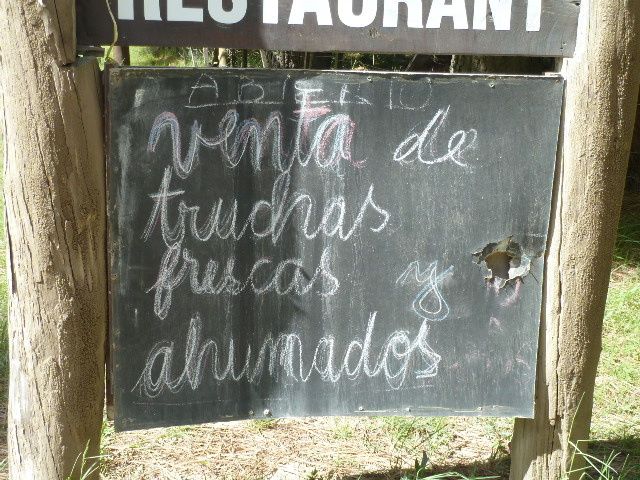 RESTAURANT
ABIERTO
venta de
truchas
frescas y
ahumados